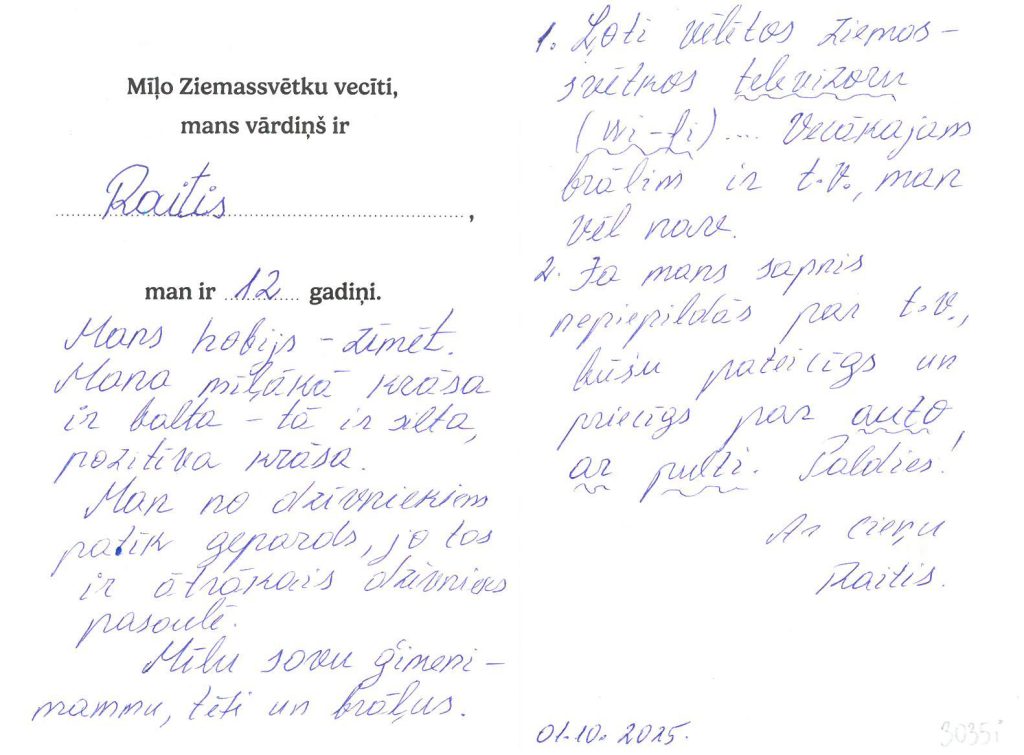 Mīļo Ziemassvētku vecīti,
mans vārdiņš ir
Raitis,
man ir 12 gadiņi.
Mans hobijs - zīmēt.
Mana mīļākā krāsa
ir balta - tā ir silta,
pozitīva krāsa.
Man no dzīvniekiem
patīk gepards, jo tas
ir ātrākais dzīvnieks
pasaulē.
Mīlu savu ģimeni -
mammu, tēti un brāļus.
1. Ļoti vēlētos Ziemas-
svētkos televizoru
(wi-fi)... Vecākajam
brālim ir t.v., man
vēl nav.
2. Ja mans sapnis
nepiepildās par t.v.,
būšu pateicīgs un
priecīgs par auto
ar pulti. Paldies!
Ar cieņu
Raitis.
01.10.2025.
3035i